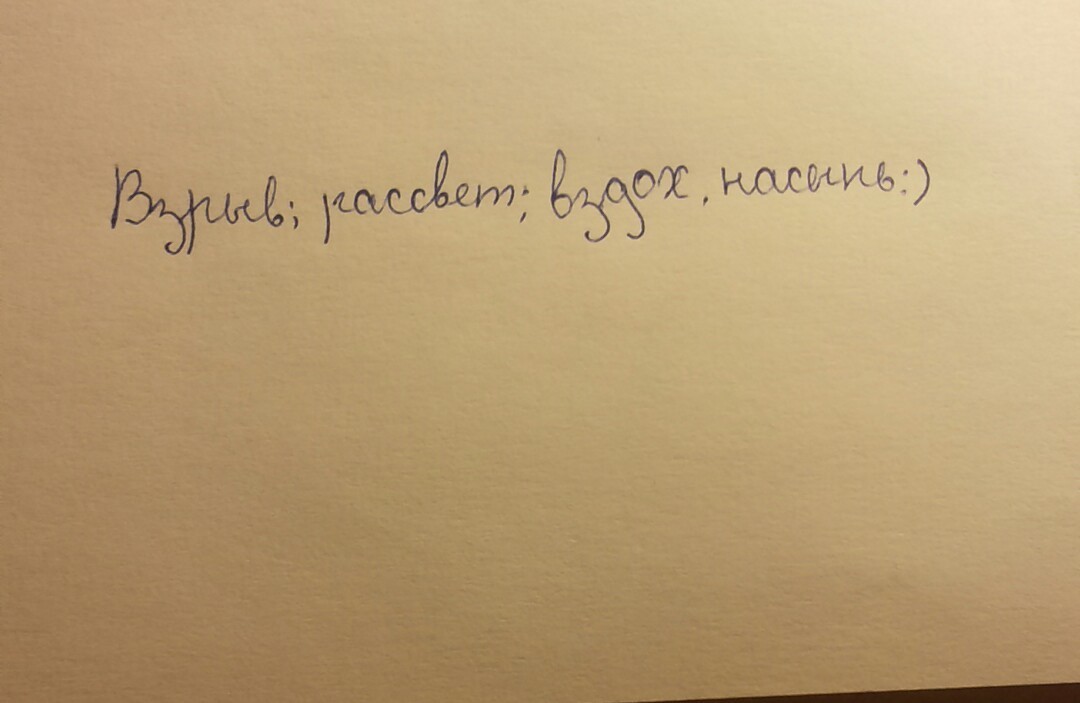 Взрыв; рассвет; вздох, насыпь:)